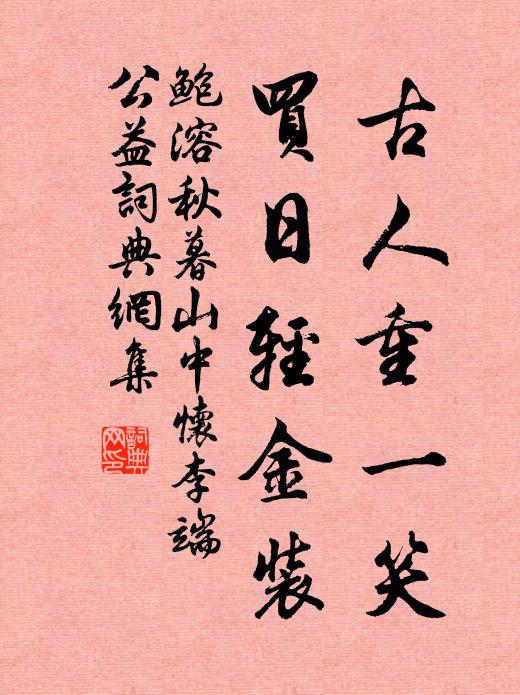 古人重一笑
買日輕金裝
鲍溶秋暮山中懷李端
公益詞典網集
詞典
网印